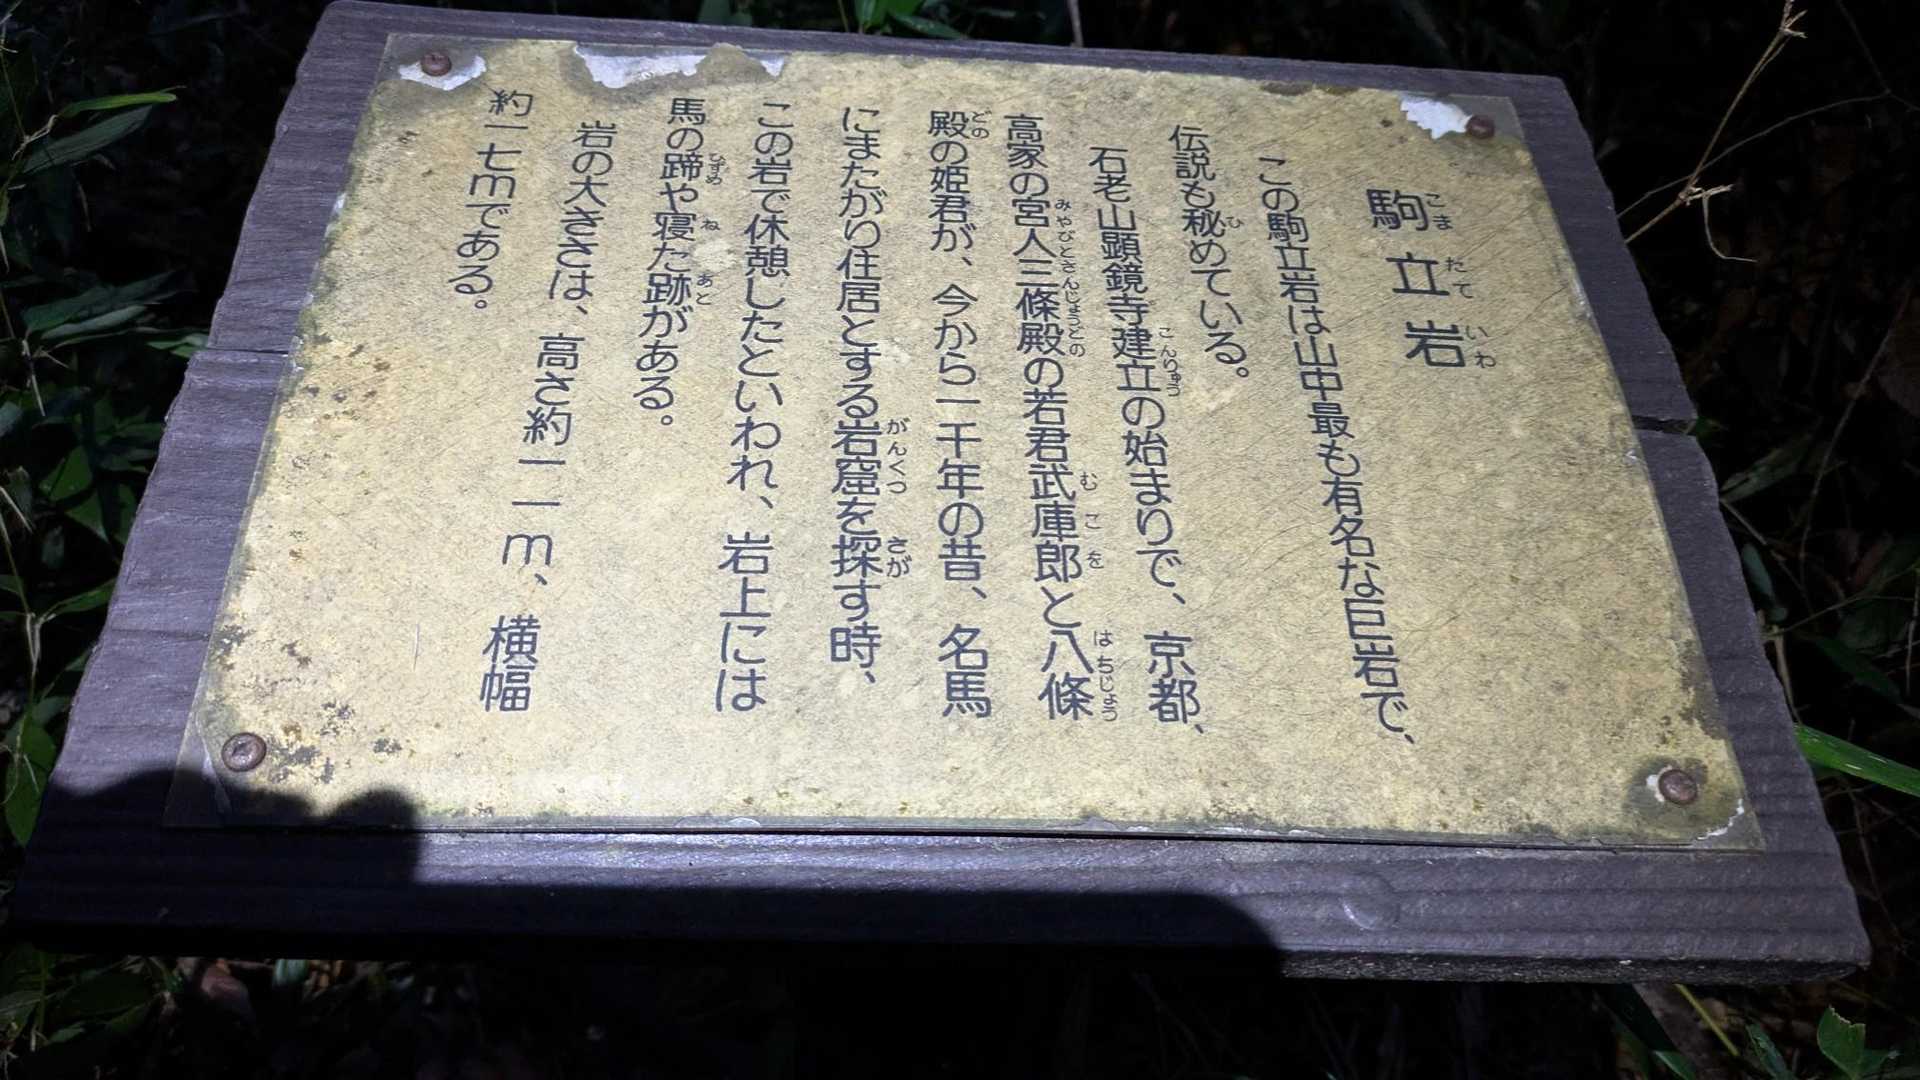 駒立岩
この駒立岩は山中最も有名な巨岩で、
伝説も秘めている。
石老山顕鏡寺建立の始まりで、京都、
高家の宮人三條殿の若君武庫郎と八條
殿の姫君が、今から一千年の昔、名馬
にまたがり住居とする岩窟を探す時、
この岩で休憩したといわれ、岩上には
馬の蹄や寝た跡がある。
岩の大きさは、高さ約一一m、横幅
約一七mである。